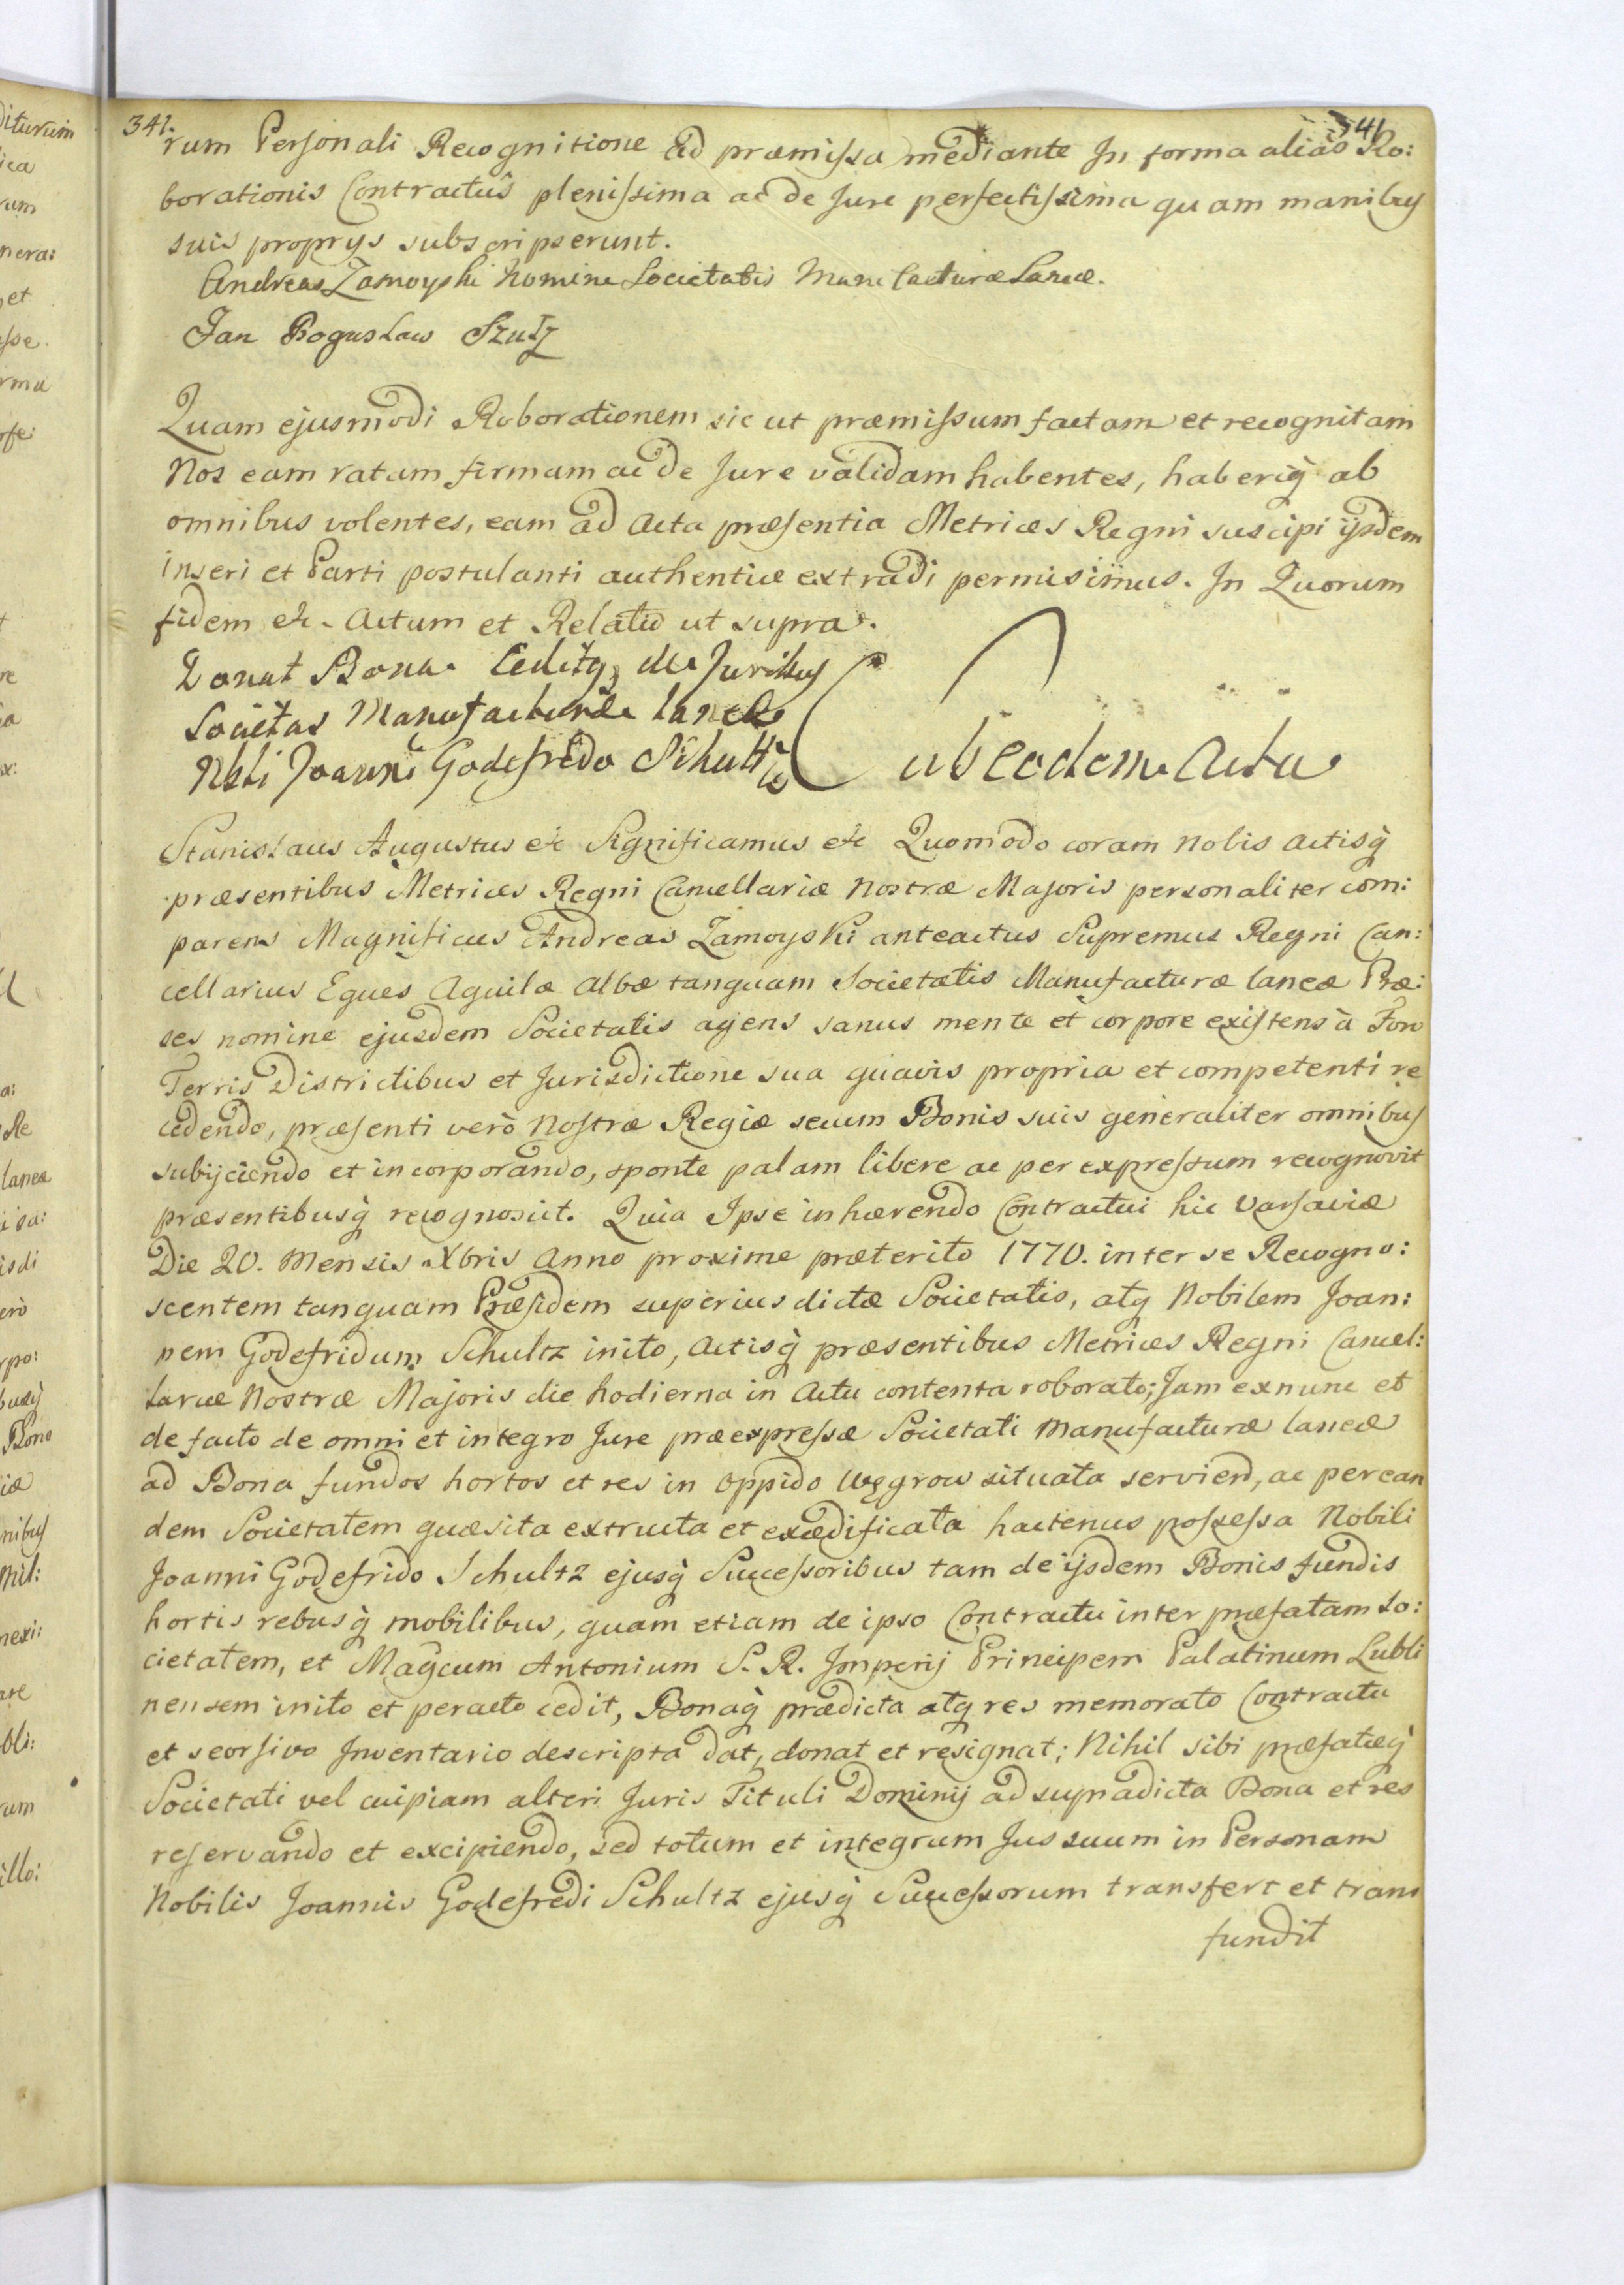 341. 341
rum Personali Recognitione ad præmissa mediante In forma alias Ro:
borationis Contractûs plenissima ac de Jure perfectissima quam manibus
suis proprys subscripserunt.
Andreas Zamoyski Nomine Societatis Manufacturæ Laneæ.
Jan Boguslaw Szulz
Quam ejusmodi Roborationem sic ut præmissum factam et recognitam
Nos eam ratam firmam ac de Jure validam habentes, haberiq̀ ab
omnibus volentes, eam ad Acta præsentia Metrices Regni suscipi ijsdem
inseri et Parti postulanti authentice extradi permisimus. In Quorum
fidem etc. Actum et Relatio ut supra.
Donat Bona Ceditq, de Juribus
Societas Manufacturæ laneæ
Nbli Joanni Godefrido Schultz
ub eodem Actu
Stanislaus Augustus etc Significamus etc Quomodo coram Nobis Actisq̀
præsentibus Metrices Regni Cancellariæ Nostræ Majoris personaliter com:
parens Magnificus Andreas Zamoyski anteactus Supremus Regni Can:
cellarius Eques Aquilæ Albæ tanquam Societatis Manufacturæ laneæ Præ:
ses nomine ejusdem Societatis agens sanus mente et corpore existens à Foro
Terris Districtibus et Jurisdictione sua quavis propria et competenti re
cedendo, præsenti verò Nostræ Regiæ secum Bonis suis generaliter omnibus
subijciendo et incorporando, sponte palam libere ac per expressum recognovit
præsentibusq̀ recognoscit. Quia Ipse inhærendo Contractui hic Varsaviæ
Die 20. Mensis Xbris Anno proxime præterito 1770. inter se Recogno:
scentem tanquam Præsidem superius dictæ Societatis, atq Nobilem Joan:
nem Godefridum Schultz inito, Actisq̀ præsentibus Metrices Regni Cancel:
lariæ Nostræ Majoris die hodierna in Actu contenta roborato; Jam exnunc et
de facto de omni et integro Jure præexpressæ Societati Manufacturæ laneæ
ad Bona fundos hortos et res in Oppido Węgrow situata servien, ac per ean
dem Societatem quæsita extructa et exædificata hactenus possessa Nobili
Joanni Godefrido Schultz ejusq̀ Successoribus tam de ijsdem Bonis fundis
hortis rebusq̀ mobilibus, quam etiam de ipso Contractu inter præfatam So:
cietatem, et Magcum Antonium S. R. Imperij Principem Palatinum Lubli
nensem inito et peracto cedit, Bonaq̀ prædicta atq res memorato Contractu
et seorsivo Inventario descripta dat, donat et resignat; Nihil sibi præfatæq̀
Societati vel cuipiam alteri Juris Tituli Dominij ad supradicta Bona et res
reservando et excipiendo, sed totum et integrum Jus suum in Personam
Nobilis Joannis Godefredi Schultz ejusq̀ Successorum transfert et trans
fundit